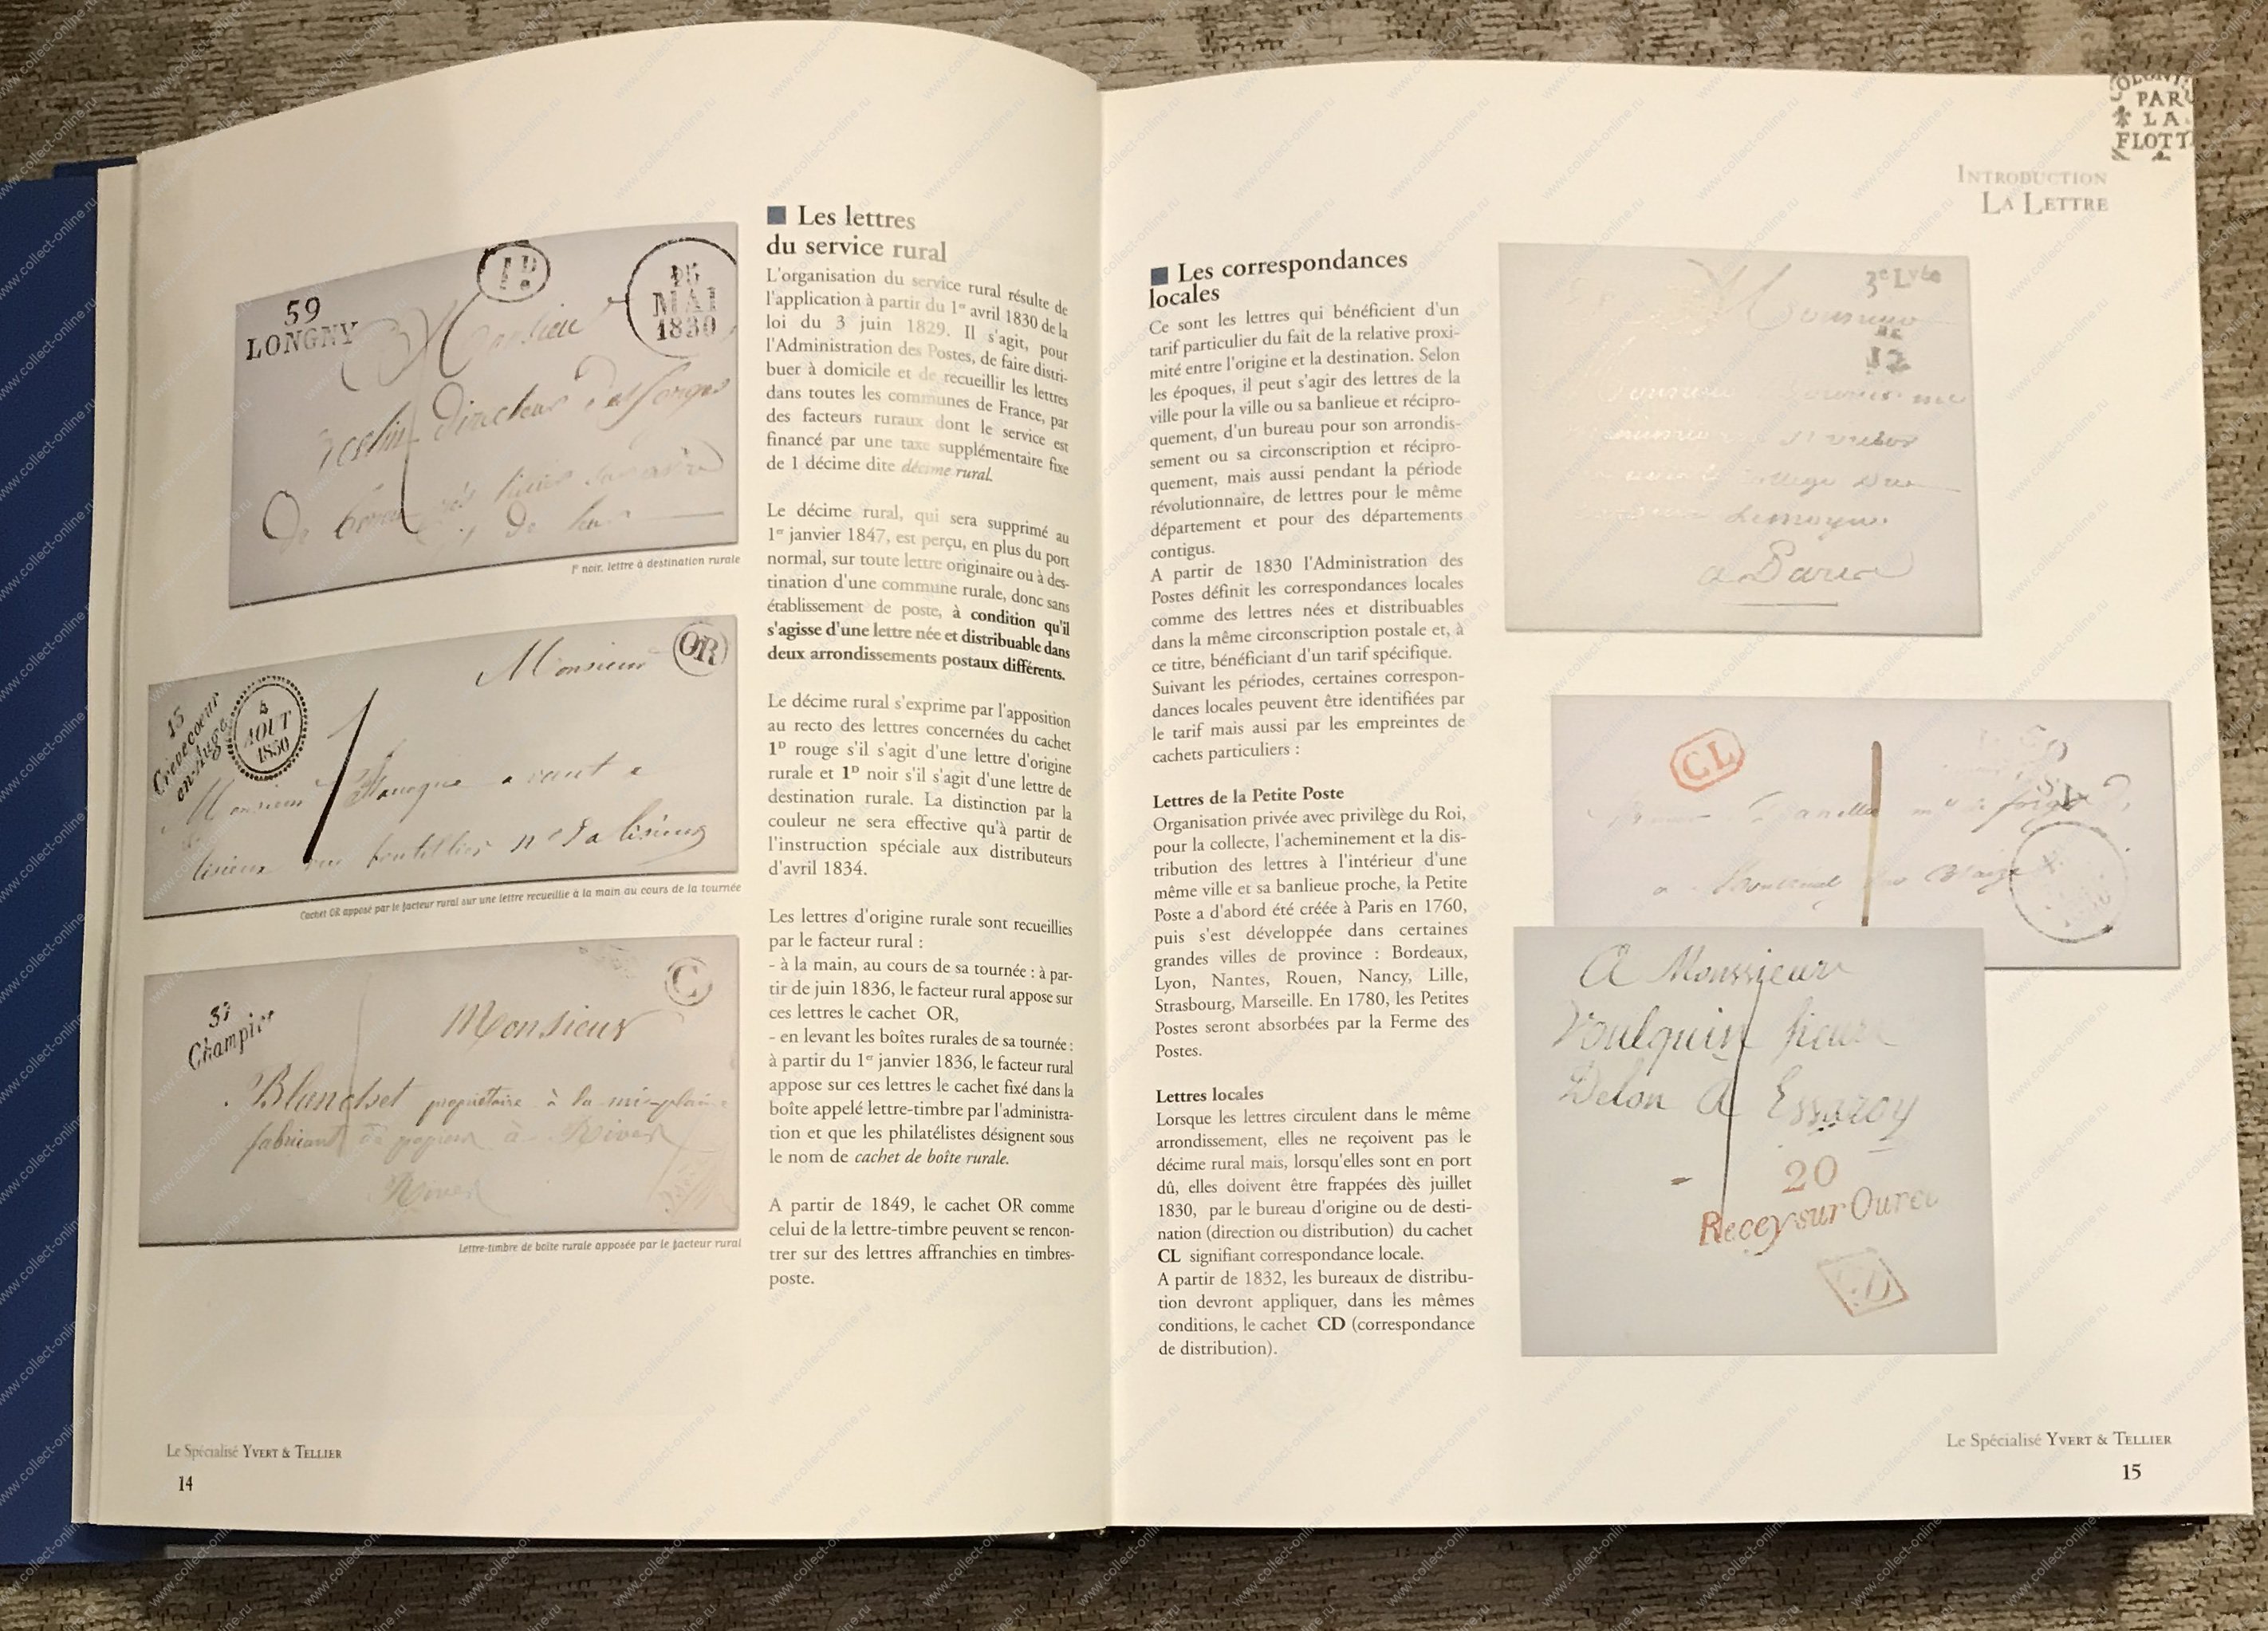 59
LONGNY
1D
25
MAI
1830
1D noir, lettre à destination rurale
Monsieur
OR
15
Crèvecoeur
en-Auge
4
AOUT
Monsieur
Cachet OR apposé par le facteur rural sur une lettre recueillie à la main au cours de la tournée
C
Champier
Monsieur
Blanchet propriétaire à la
fabricant de papiers à Rives
Rives
Lettre-timbre de boîte rurale apposée par le facteur rural
Les lettres
du service rural
L'organisation du service rural résulte de
l'application à partir du 1er avril 1830 de la
loi du 3 juin 1829. Il s'agit, pour
l'Administration des Postes, de faire distri-
buer à domicile et de recueillir les lettres
dans toutes les communes de France, par
des facteurs ruraux dont le service est
financé par une taxe supplémentaire fixe
de 1 décime dite décime rural.
Le décime rural, qui sera supprimé au
1er janvier 1847, est perçu, en plus du port
normal, sur toute lettre originaire ou à des-
tination d'une commune rurale, donc sans
établissement de poste, à condition qu'il
s'agisse d'une lettre née et distribuable dans
deux arrondissements postaux différents.
Le décime rural s'exprime par l'apposition
au recto des lettres concernées du cachet
1D rouge s'il s'agit d'une lettre d'origine
rurale et 1D noir s'il s'agit d'une lettre de
destination rurale. La distinction par la
couleur ne sera effective qu'à partir de
l'instruction spéciale aux distributeurs
d'avril 1834.
Les lettres d'origine rurale sont recueillies
par le facteur rural :
- à la main, au cours de sa tournée : à par-
tir de juin 1836, le facteur rural appose sur
ces lettres le cachet OR,
- en levant les boîtes rurales de sa tournée :
à partir du 1er janvier 1836, le facteur rural
appose sur ces lettres le cachet fixé dans la
boîte appelé lettre-timbre par l'administra-
tion et que les philatélistes désignent sous
le nom de cachet de boîte rurale.
A partir de 1849, le cachet OR comme
celui de la lettre-timbre peuvent se rencon-
trer sur des lettres affranchies en timbres-
poste.
Le Spécialisé YVERT & TELLIER
14
PAR
LA
FLOTT
INTRODUCTION
LA LETTRE
Les correspondances
locales
Ce sont les lettres qui bénéficient d'un
tarif particulier du fait de la relative proxi-
mité entre l'origine et la destination. Selon
les époques, il peut s'agir des lettres de la
ville pour la ville ou sa banlieue et récipro-
quement, d'un bureau pour son arrondis-
sement ou sa circonscription et récipro-
quement, mais aussi pendant la période
révolutionnaire, de lettres pour le même
département et pour des départements
contigus.
A partir de 1830 l'Administration des
Postes définit les correspondances locales
comme des lettres nées et distribuables
dans la même circonscription postale et, à
ce titre, bénéficiant d'un tarif spécifique.
Suivant les périodes, certaines correspon-
dances locales peuvent être identifiées par
le tarif mais aussi par les empreintes de
cachets particuliers :
Lettres de la Petite Poste
Organisation privée avec privilège du Roi,
pour la collecte, l'acheminement et la dis-
tribution des lettres à l'intérieur d'une
même ville et sa banlieue proche, la Petite
Poste a d'abord été créée à Paris en 1760,
puis s'est développée dans certaines
grandes villes de province : Bordeaux,
Lyon, Nantes, Rouen, Nancy, Lille,
Strasbourg, Marseille. En 1780, les Petites
Postes seront absorbées par la Ferme des
Postes.
Lettres locales
Lorsque les lettres circulent dans le même
arrondissement, elles ne reçoivent pas le
décime rural mais, lorsqu'elles sont en port
dû, elles doivent être frappées dès juillet
1830, par le bureau d'origine ou de desti-
nation (direction ou distribution) du cachet
CL signifiant correspondance locale.
A partir de 1832, les bureaux de distribu-
tion devront appliquer, dans les mêmes
conditions, le cachet CD (correspondance
de distribution).
12
a Paris
CL
A Monssieur
Delon A Essaroy
20
Recey surOurce
CD
Le Spécialisé YVERT & TELLIER
15
www.collect-online.ru